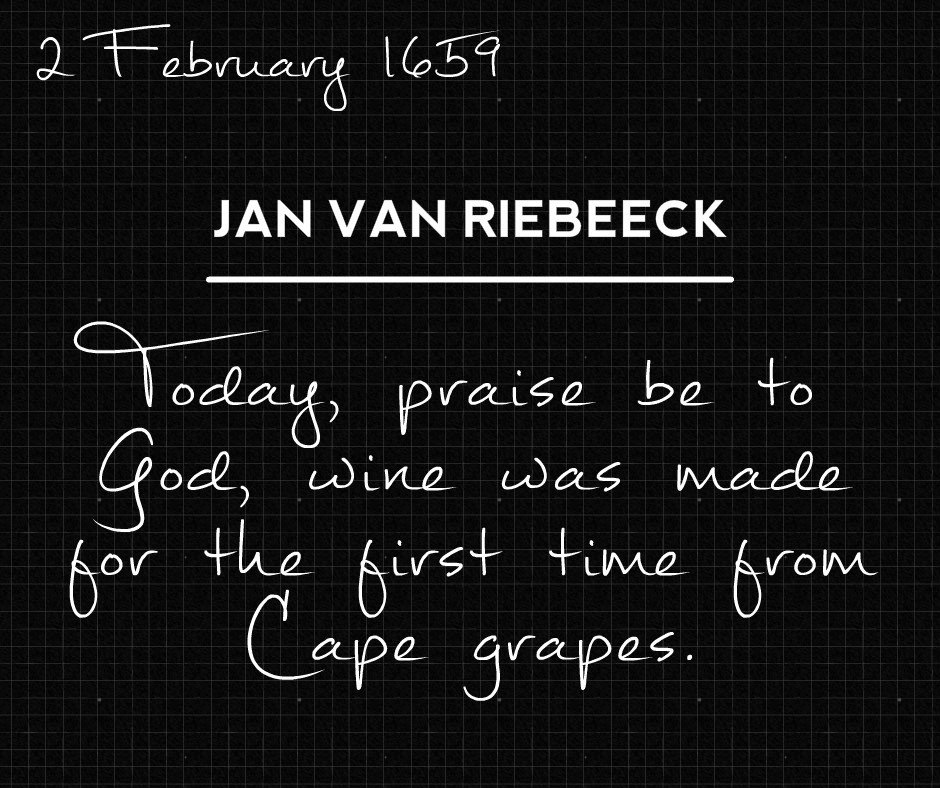 2 February 1659
JAN VAN RIEBEECK
Today, praise be to
God, wine was made
for the first time from
Cape grapes.